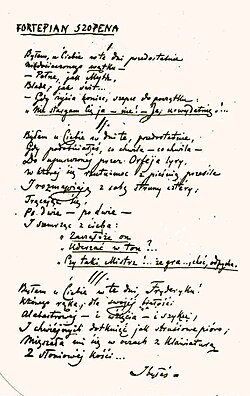 FORTEPIAN SZOPENA
I.
Byłem u Ciebie w te dni przedostatnie
Niedocieczonego wątku —
— Pełne, jak Mythe,
Blade, jak świt...
— Gdy życia koniec, szepce do początku:
"Nie stargam Cię ja — nie! — Ja, uwydatnię!...
II.
Byłem u Ciebie w dni te, przedostatnie,
Gdy podobniałeś, co chwila — co chwila —
Do upuszczonej przez Orfeja liry,
W której się rzutu-moc z pieśnią przesila
I rozmawiają z sobą struny cztéry,
Trącając się,
Po dwie — po dwie —
I szemrząc z cicha:
"Zacząłże on
"Uderzać w ton?...
"Czy taki Mistrz!... że gra... choć, odpycha..
III.
Byłem u Ciebie w te dni Fryderyku!
Którego ręka, dla swojej białości
Alabastrowej — i wzięcia — i szyku,
I chwiejnych dotknięć jak strusiowe pióro,
Mięszała mi się w oczach z klawiaturą
Z słoniowej kości...
I byłeś —